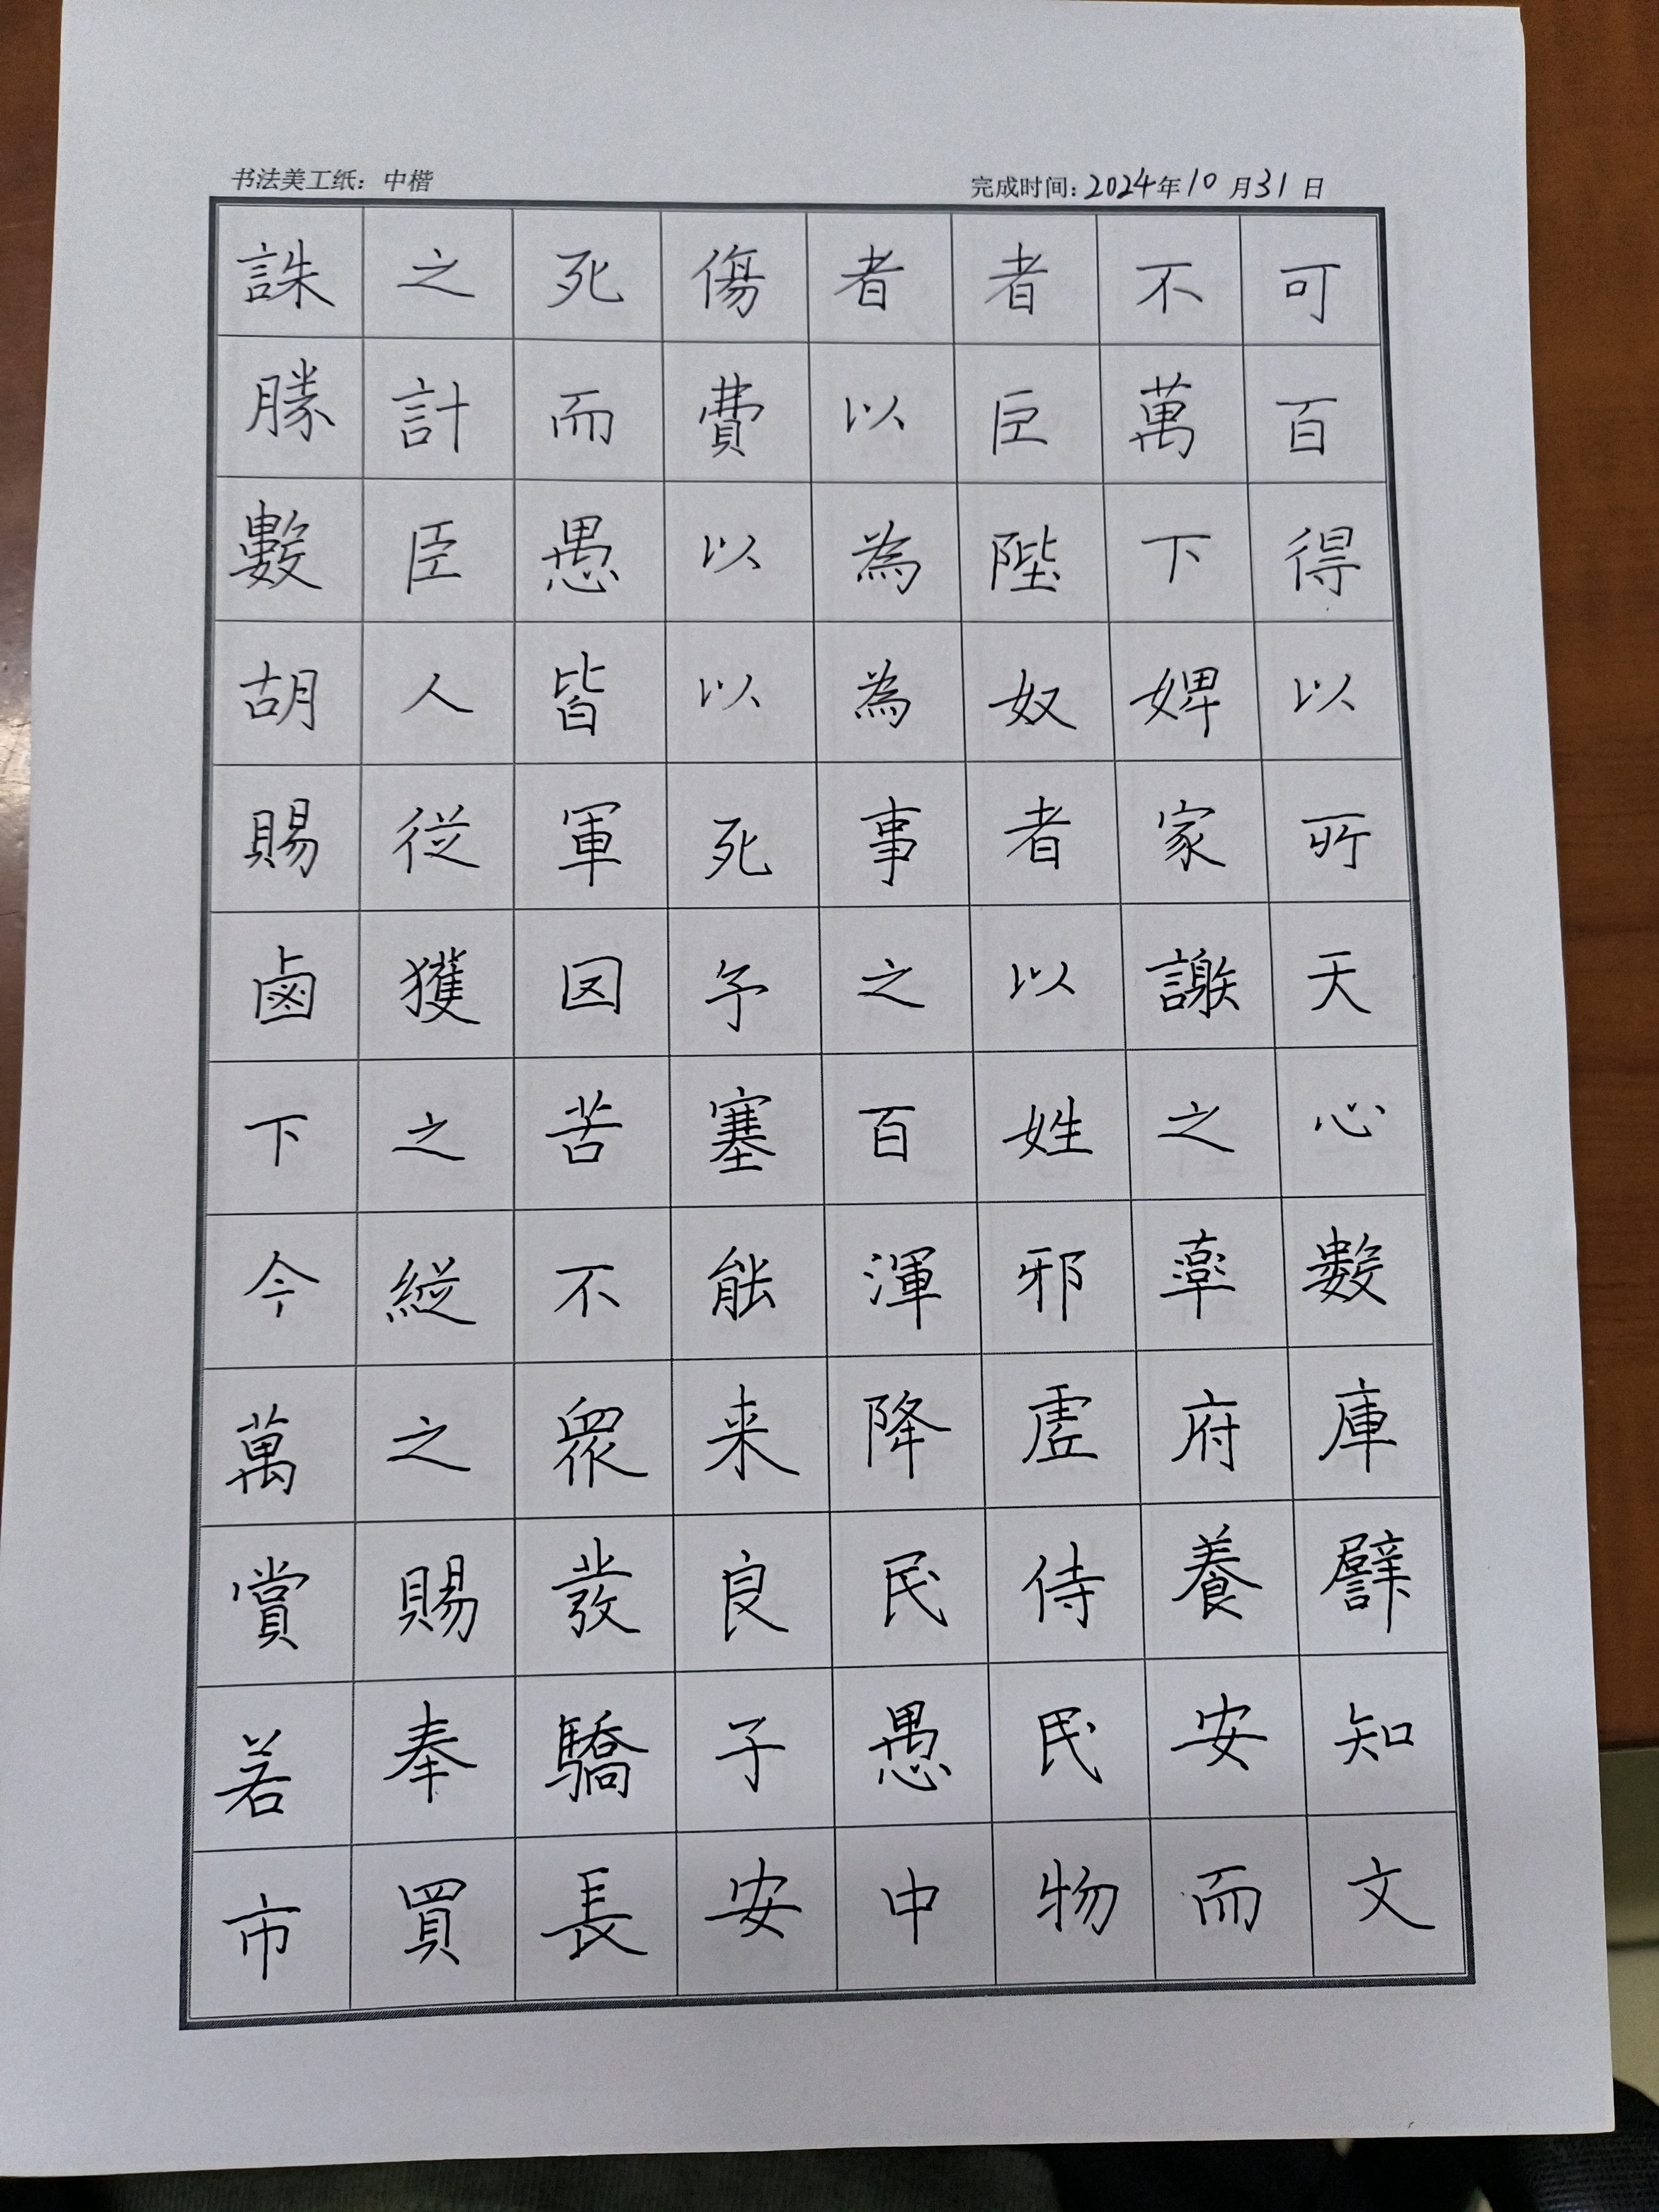 书法美工纸：中楷
完成时间：2024年10月31日
誅之死傷者者不可
勝計而費以巨萬百
數臣愚以為陛下得
胡人皆以為奴婢以
賜従軍死事者家所
鹵獲因予之以謝天
下之苦塞百姓之心
今縦不能渾邪率數
萬之眾来降虛府庫
賞賜發良民侍養譬
若奉驕子愚民安知
市買長安中物而文